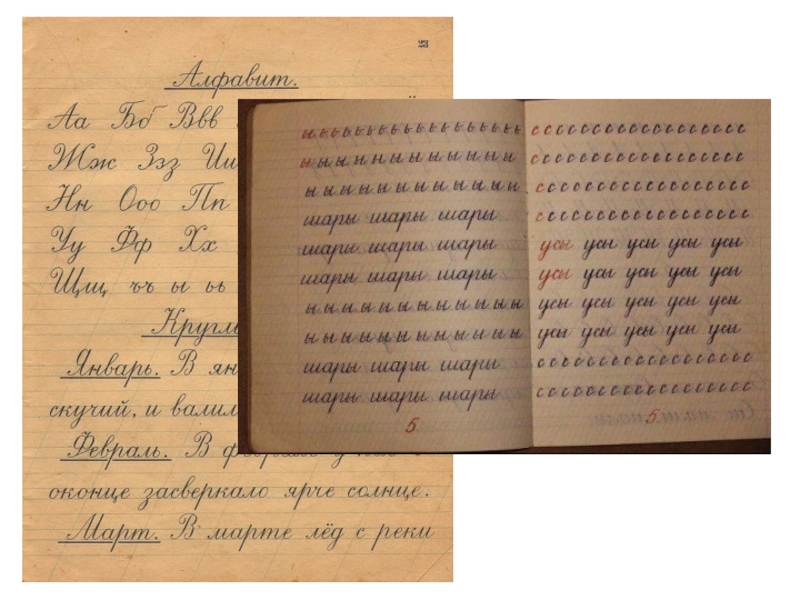 Алфавит.
Аа Бб Ввв
Жж Ззз Ии
Нн Ооо Пп
Уу Фф Хх
Щщ ъъ ы ьь
Кругл
Январь. В ян
скучий, и валил
Февраль. В феврале у нас в
оконце засверкало ярче солнце.
Март. В марте лёд с реки
ы ь ь ь ь ь ь ь ь ь ь ь ь ь ь ь ь ь
ы ы ы ы ы ы ы ы ы ы ы ы ы
ы ы ы ы ы ы ы ы ы ы ы ы ы
шары шары шары
шары шары шары
шары шары шары
ы ы ы ы ы ы ы ы ы ы ы ы ы
ы ы ы ы ы ы ы ы ы ы ы ы ы
шары шары шары
шары шары шары
5
с с с с с с с с с с с с с с с с с с
с с с с с с с с с с с с с с с с с с
с с с с с с с с с с с с с с с с с с
с с с с с с с с с с с с с с с с с с
усы усы усы усы усы
усы усы усы усы усы
усы усы усы усы усы
усы усы усы усы усы
с с с с с с с с с с с с с с с с с с
с с с с с с с с с с с с с с с с с с
5